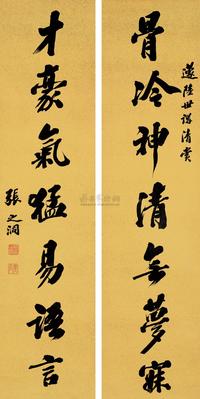 蓬陸世講清賞
骨冷神清無夢寐
才豪氣猛易語言
張之洞